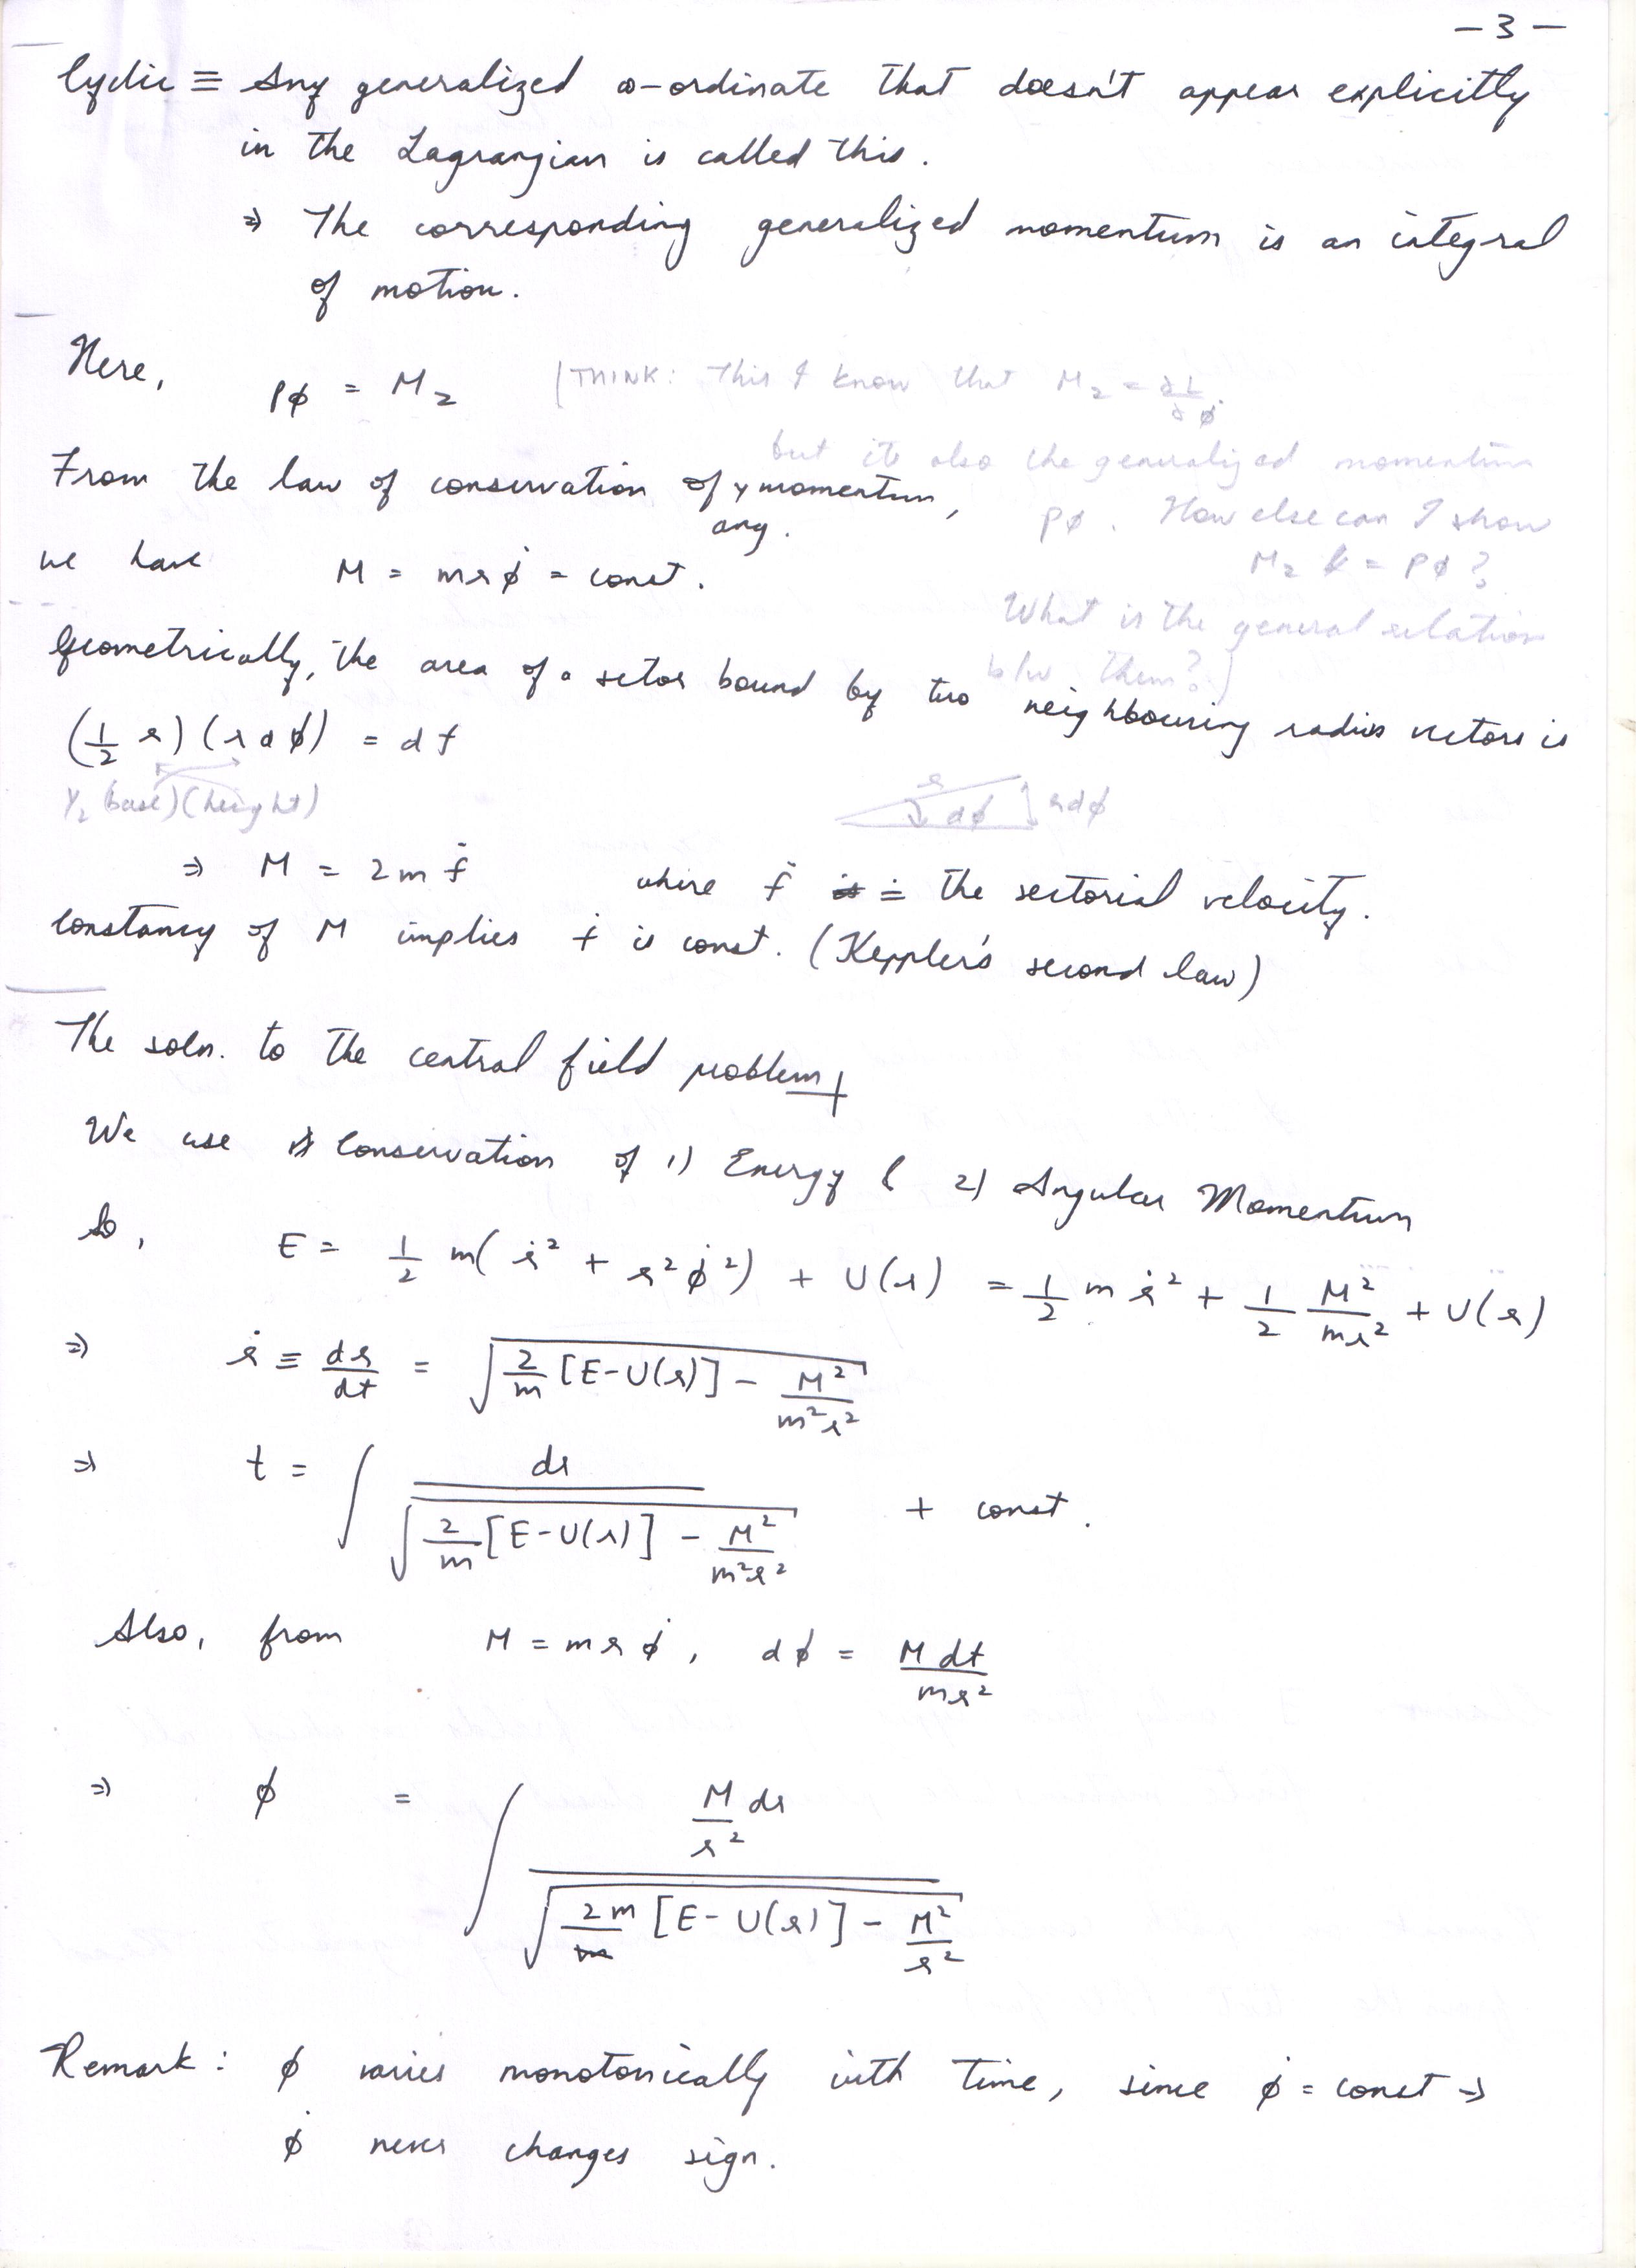 – 3 –
Cyclic ≡ Any generalized co-ordinate that doesn't appear explicitly
in the Lagrangian is called this.
⇒ The corresponding generalized momentum is an integral
of motion.
Here,
pϕ = M_z (THINK: This I know that M_z = ∂L/∂ϕ̇
but its also the generalized momentum
pϕ. How else can I show
M_z = pϕ?
What is the general relation
b/w them?)
From the law of conservation of ang. momentum,
we have M = mrϕ̇ = const.
Geometrically, the area of a sctor bound by two neighbouring radius vectors is
(1/2 r)(r dϕ) = df
1/2 (base)(height)
r dϕ rdϕ
⇒ M = 2mḟ where ḟ ≡ the sectorial velocity.
Constancy of M implies ḟ is const. (Keppler's second law)
The soln. to the central field problem
We use Conservation of 1) Energy & 2) Angular Momentum
So, E = 1/2 m(ṙ² + r²ϕ̇²) + U(r) = 1/2 mṙ² + 1/2 M²/mr² + U(r)
⇒ ṙ ≡ dr/dt = √(2/m [E-U(r)] - M²/m²r²)
⇒ t = ∫ dr / √(2/m [E-U(r)] - M²/m²r²) + const.
Also, from M = mrϕ̇, dϕ = M dt/mr²
⇒ ϕ = ∫ (M/r² dr) / √(2m [E-U(r)] - M²/r²)
Remark: ϕ varies monotonically with time, since ϕ̇ = const ⇒
ϕ̇ never changes sign.